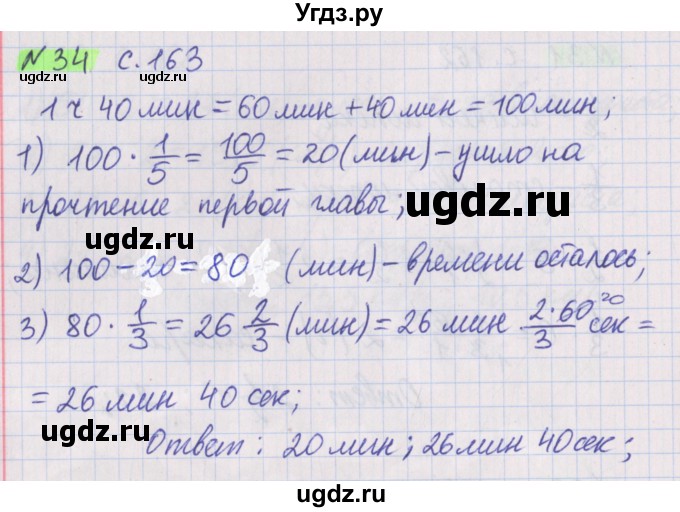 Угдз.ру
№34 с.163
1 ч 40 мин = 60 мин + 40 мин = 100 мин;
1) 100 · 1/5 = 100/5 = 20 (мин) – ушло на
прочтение первой главы;
2) 100 – 20 = 80 (мин) – времени осталось;
3) 80 · 1/3 = 26 2/3 (мин) = 26 мин 2·60/3 20 сек =
= 26 мин 40 сек;
Ответ: 20 мин; 26 мин 40 сек;
ugdz.ru
ugdz.ru
ugdz.ru
ugdz.ru
ugdz.ru
ugdz.ru
ugdz.ru
ugdz.ru